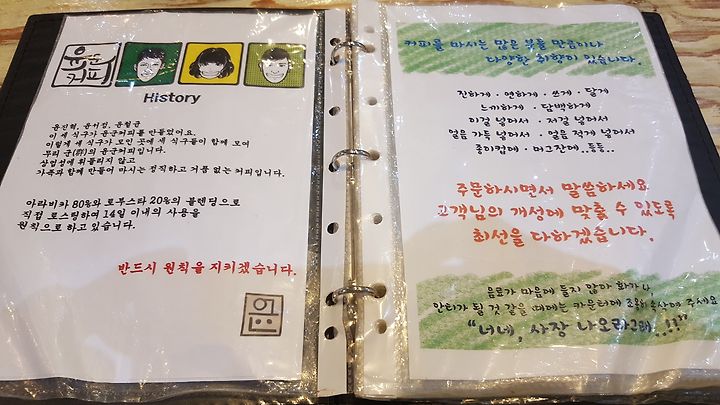 윤군
커피
History
윤진혁, 윤서집, 윤혈균
이 세 식구가 윤군커피를 만들었어요.
이렇게 세 식구가 모인 곳에 세 식구들이 함께 모여
무리 군(群)의 윤군커피입니다.
상업성에 휘둘리지 않고
가족과 함께 만들어 마시는 정직하고 거품 없는 커피입니다.
아라비카 80%와 로부스타 20%의 블렌딩으로
직접 로스팅하여 14일 이내의 사용을
원칙으로 하고 있습니다.
반드시 원칙을 지키겠습니다.
커피를 마시는 많은 분들 만큼이나
다양한 취향이 있습니다.
진하게 · 연하게 · 쓰게 · 달게
느끼하게 · 담백하게
이걸 넣어서 · 저걸 넣어서
얼음 가득 넣어서 · 얼음 적게 넣어서
종이컵에 · 머그잔에..등등..
주문하시면서 말씀하세요
고객님의 개성에 맞출 수 있도록
최선을 다하겠습니다.
음료가 마음에 들지 않아 화가나
안티가 될 것 같을 때에는 카운터에 조용히 속삭여 주세요
"너네, 사장 나오라고해..!!"